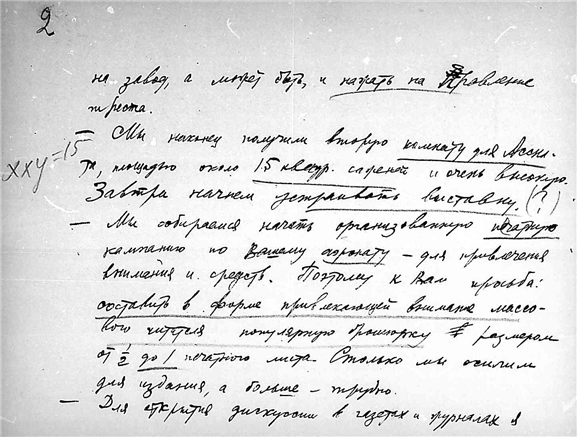 2
на завод, а может быть, и нажать на Правление
треста.
— Мы наконец получили вторую комнату для Ассна-
та, площадью около 15 квадр. саженей и очень высокую.
xxy=15
Завтра начнем устраивать выставку (?)
— Мы собираемся начать организованную печатную
кампанию по Вашему аэронату – для привлечения
внимания и средств. Поэтому к Вам просьба:
составить в форме привлекающей внимание массо-
вого читателя популярную брошюрку размером
от ½ до 1 печатного листа. Столько мы осилим
для издания, а больше – трудно.
— Для открытия дискуссии в газетах и журналах я